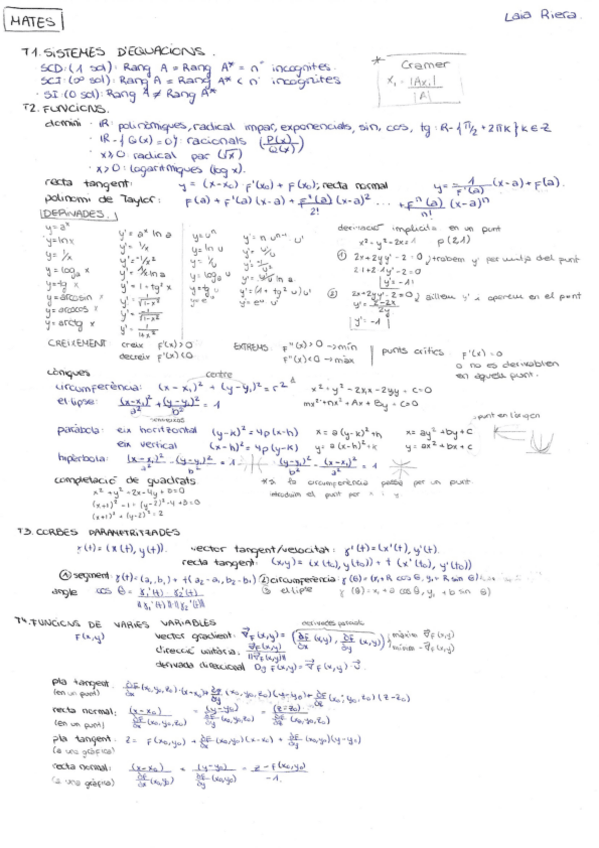 MATES
Laia Riera.
T1. SISTEMES D'EQUACIONS.
SCD: (1 sol): Rang A = Rang A* = nº incognites.
SCI: (∞ sol): Rang A = Rang A* < nº incognites
· SI: (0 sol): Rang A ≠ Rang A*
* Cramer
x₁ = |Ax₁| / |A|
T2. FUNCIONS.
domini · ℝ: polinòmiques, radical impar, exponencials, sin, cos, tg: ℝ-{π/2 + 2πk} k∈ℤ
· ℝ-{Q(x)=0}: racionals (P(x)/Q(x))
· x≥0 radical par (√x)
· x>0: logarítmiques (log x).
recta tangent: y = (x-x₀)·f'(x₀) + f(x₀); recta normal y = 1/f'(a) (x-a) + f(a).
polinomi de Taylor: f(a) + f'(a)(x-a) + f''(a)/2! (x-a)² ... + fⁿ(a)/n! (x-a)ⁿ
DERIVADES.
y=aˣ y'=aˣ ln a
y=ln x y'=1/x
y=1/x y'=-1/x²
y=logₐ x
y=tg x y'=1+tg² x
y=arcosin x
y=arcocos x
y=arctg x y'=1/(1+x²)
y=uⁿ y'=n·uⁿ⁻¹·u'
y=ln u y'=u'/u
y=logₐ u
y=tg u y'=(1+tg² u)u'
y=eᵘ y'=eᵘ u'
derivació implícita en un punt
x²-y²-2x=1 p(2,1)
① 2x+2yy'-2=0; trobem y' per mitja del punt
2·1+2·1y'-2=0
y'=-1
② 2x+2yy'-2=0; aillem y' i operem en el punt
y'=2-2x/2y
y'=-1
CREIXEMENT creix f'(x)>0
decreix f'(x)<0
EXTREMS: f''(x)>0 → mín
f''(x)<0 → màx
punts crítics: f'(x)=0
o no es derivable en aquell punt.
còniques
centre
circumferència: (x-x₁)² + (y-y₁)² = r² x²+y²-2x₁x-2y₁y-c=0
el·lipse: (x-x₁)²/a² + (y-y₁)²/b² = 1 mx²+nx²+Ax+By-c=0
punt en l'origen
paràbola: eix horitzontal (y-k)²=4p(x-h) x=a(y-k)²+h x=ay²+by+c
eix vertical (x-h)²=4p(y-k) y=a(x-h)²+k y=ax²+bx+c
hipèrbola: (x-x₁)²/a² - (y-y₁)²/b² = 1 (y-y₁)²/b² - (x-x₁)²/a² = 1
completació de quadrats
x²+y²+2x-4y+0=0
(x+1)²-1+(y-2)²-4+0=0
(x+1)²+(y-2)²=2
la circumferència passa per un punt
introduïm el punt per
T3. CORBES PARAMETRITZADES
γ(t)=(x(t),y(t)). vector tangent/velocitat: γ'(t)=(x'(t),y'(t)).
recta tangent: (x,y)=(x(t₀),y(t₀))+t(x'(t₀),y'(t₀))
① segment: γ(t)=(a₁,b₁)+t(a₂-a₁,b₂-b₁) ② circumferència: γ(θ)=(x₁+R cos θ, y₁+R sin θ)
angle cos θ = γ₁'(t) γ₂'(t) / ||γ₁'(t)|| ||γ₂'(t)|| ③ el·lipse γ(θ)=x₁+a cos θ, y₁+b sin θ)
T4. FUNCIONS DE VARIES VARIABLES
derivades parcials
f(x,y) vector gradient: ∇f(x,y)=(∂f/∂x (x,y), ∂f/∂y (x,y)) màxim ∇f(x,y)
mínim -∇f(x,y)
direcció unitària: ∇f(x,y)/||∇f(x,y)||
derivada direccional Dᵥf(x,y)=∇f(x,y)·v
pla tangent: ∂f/∂x (x₀,y₀,z₀)·(x-x₀)+∂f/∂y (x₀,y₀,z₀)(y-y₀)+∂f/∂z (x₀,y₀,z₀)(z-z₀)
(en un punt)
recta normal: (x-x₀)/∂f/∂x (x₀,y₀,z₀) = (y-y₀)/∂f/∂y (x₀,y₀,z₀) = (z-z₀)/∂f/∂z (x₀,y₀,z₀)
(en un punt)
pla tangent: z= f(x₀,y₀)+∂f/∂x (x₀,y₀)(x-x₀)+∂f/∂y (x₀,y₀)(y-y₀)
(a una gràfica)
recta normal: (x-x₀)/∂f/∂x (x₀,y₀) = (y-y₀)/∂f/∂y (x₀,y₀) = z-f(x₀,y₀)/-1.
(a una gràfica)